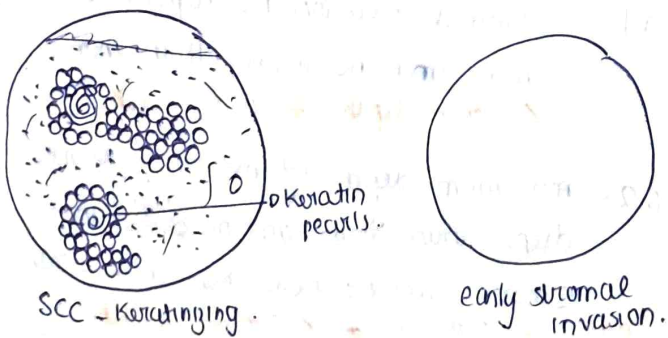 Keratin
pearls.
SCC - Keratinizing.
early stromal
invasion.